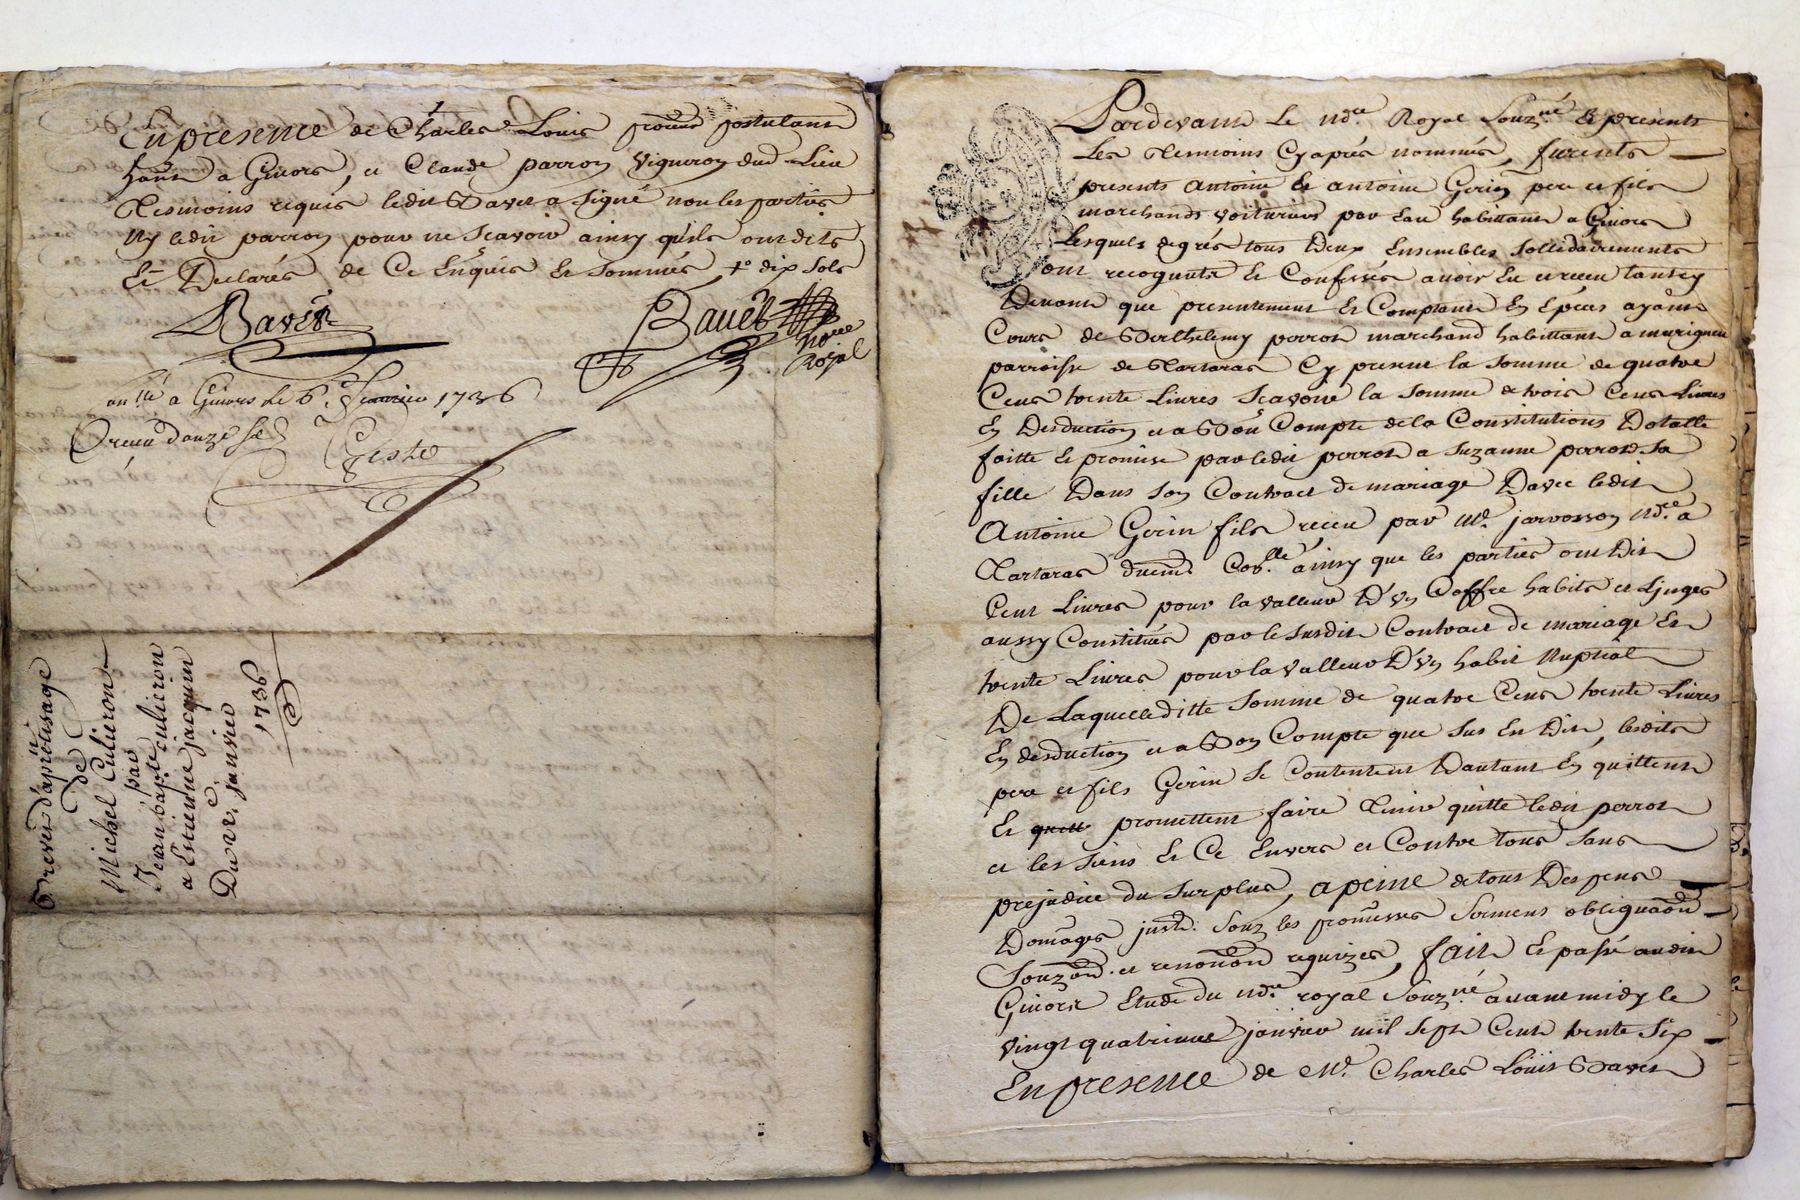 En presence de Charles Louis postulant
habitt a Givors, et Claude parron vigneron dud. Lieu
Tesmoins requis ledit Bavet a signé non les parties
ny ledit parron pour ne Scavoir ainsy quils ont dits
Et Declarés de Ce Enquis Et Sommés, dix Sols
Bavet
Bavet
Nore
Royal
a Givors le 6e fevrier 1736
Receu douze s.
Geste
Brevet d'aprêtisage
de
Michel Culieron
par
Jean bap.te culieron
a Estienne jacquin
Du janvier
1736
Pardevant Le Nore. Royal Souz.né Et presents
Les Tesmoins Cy aprés nommés, furents
presents Antoine Et antoine Gerin pere et fils
marchands voituriers par Eau habittants a Givors
Lesquels degrés tous Deux Ensembles Sollidairements
ont recognuts Et Confessés avoir Eu et receu tant cy
Devant que presentement Et Comptant En Epeces ayant
Cours de Berthelemy perron marchand habittant a
parroisse de Tartaras Cy present la Somme de quatre
Cens trente Livres Scavoir la Somme de trois Cens Livres
En Desduction et a Bon Compte de la Constitutions Dotalle
faitte Et promise par ledit perron a Suzanne perron Sa
fille Dans Son Contract de mariage Davec ledit
Antoine Gerin fils receu par Me. jarrosson Nore. a
Tartaras duem.t Con.llé ainsy que les parties ont Dit
Cent Livres pour la valleur D'Vn Coffre habits et Linges
aussy Constitués par le Susdit Contract de mariage Et
trente Livres pour la Valleur D'Vn habit Nuptial
De Laquelleditte Somme de quatre Cens trente Livres
En desduction et a Bon Compte que Sus En Dit, lesdits
pere et fils Gerin Se Contentent Dautant En quittent
Et quitt promettent faire Tenir quitte ledit perron
et les Siens Et Ce Envers et Contre tous Sans
prejudice du Surplus, a peine de tous Despens
Domages Souz les promesses Sermens obligaôn
Souzôn. et renonôn requizes, fait Et passé audit
Givors Etude du Nore. royal Souz.né avant midy le
vingt quatrieme janvier mil Sept Cent trente Six
En presence de Me. Charles Loüis Bavet